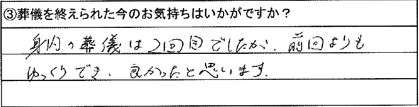 ③葬儀を終えられた今のお気持ちはいかがですか？
身内の葬儀は2回目でしたが、前回よりも
ゆっくりでき、良かったと思います。